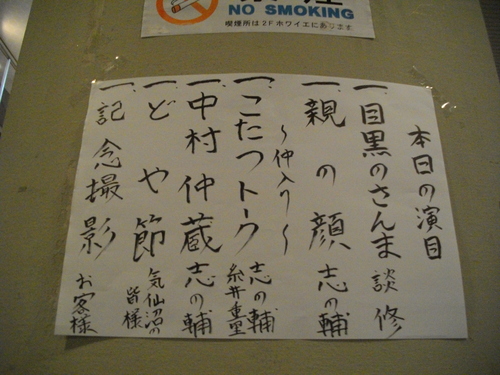 NO SMOKING
喫煙所は2Fホワイエにあります
本日の演目
一、目黒のさんま 談修
一、親の顔 志の輔
～仲入り～
一、こたつトーク 志の輔 糸井重里
一、中村仲蔵 志の輔
一、どや節 気仙沼の皆様
一、記念撮影 お客様